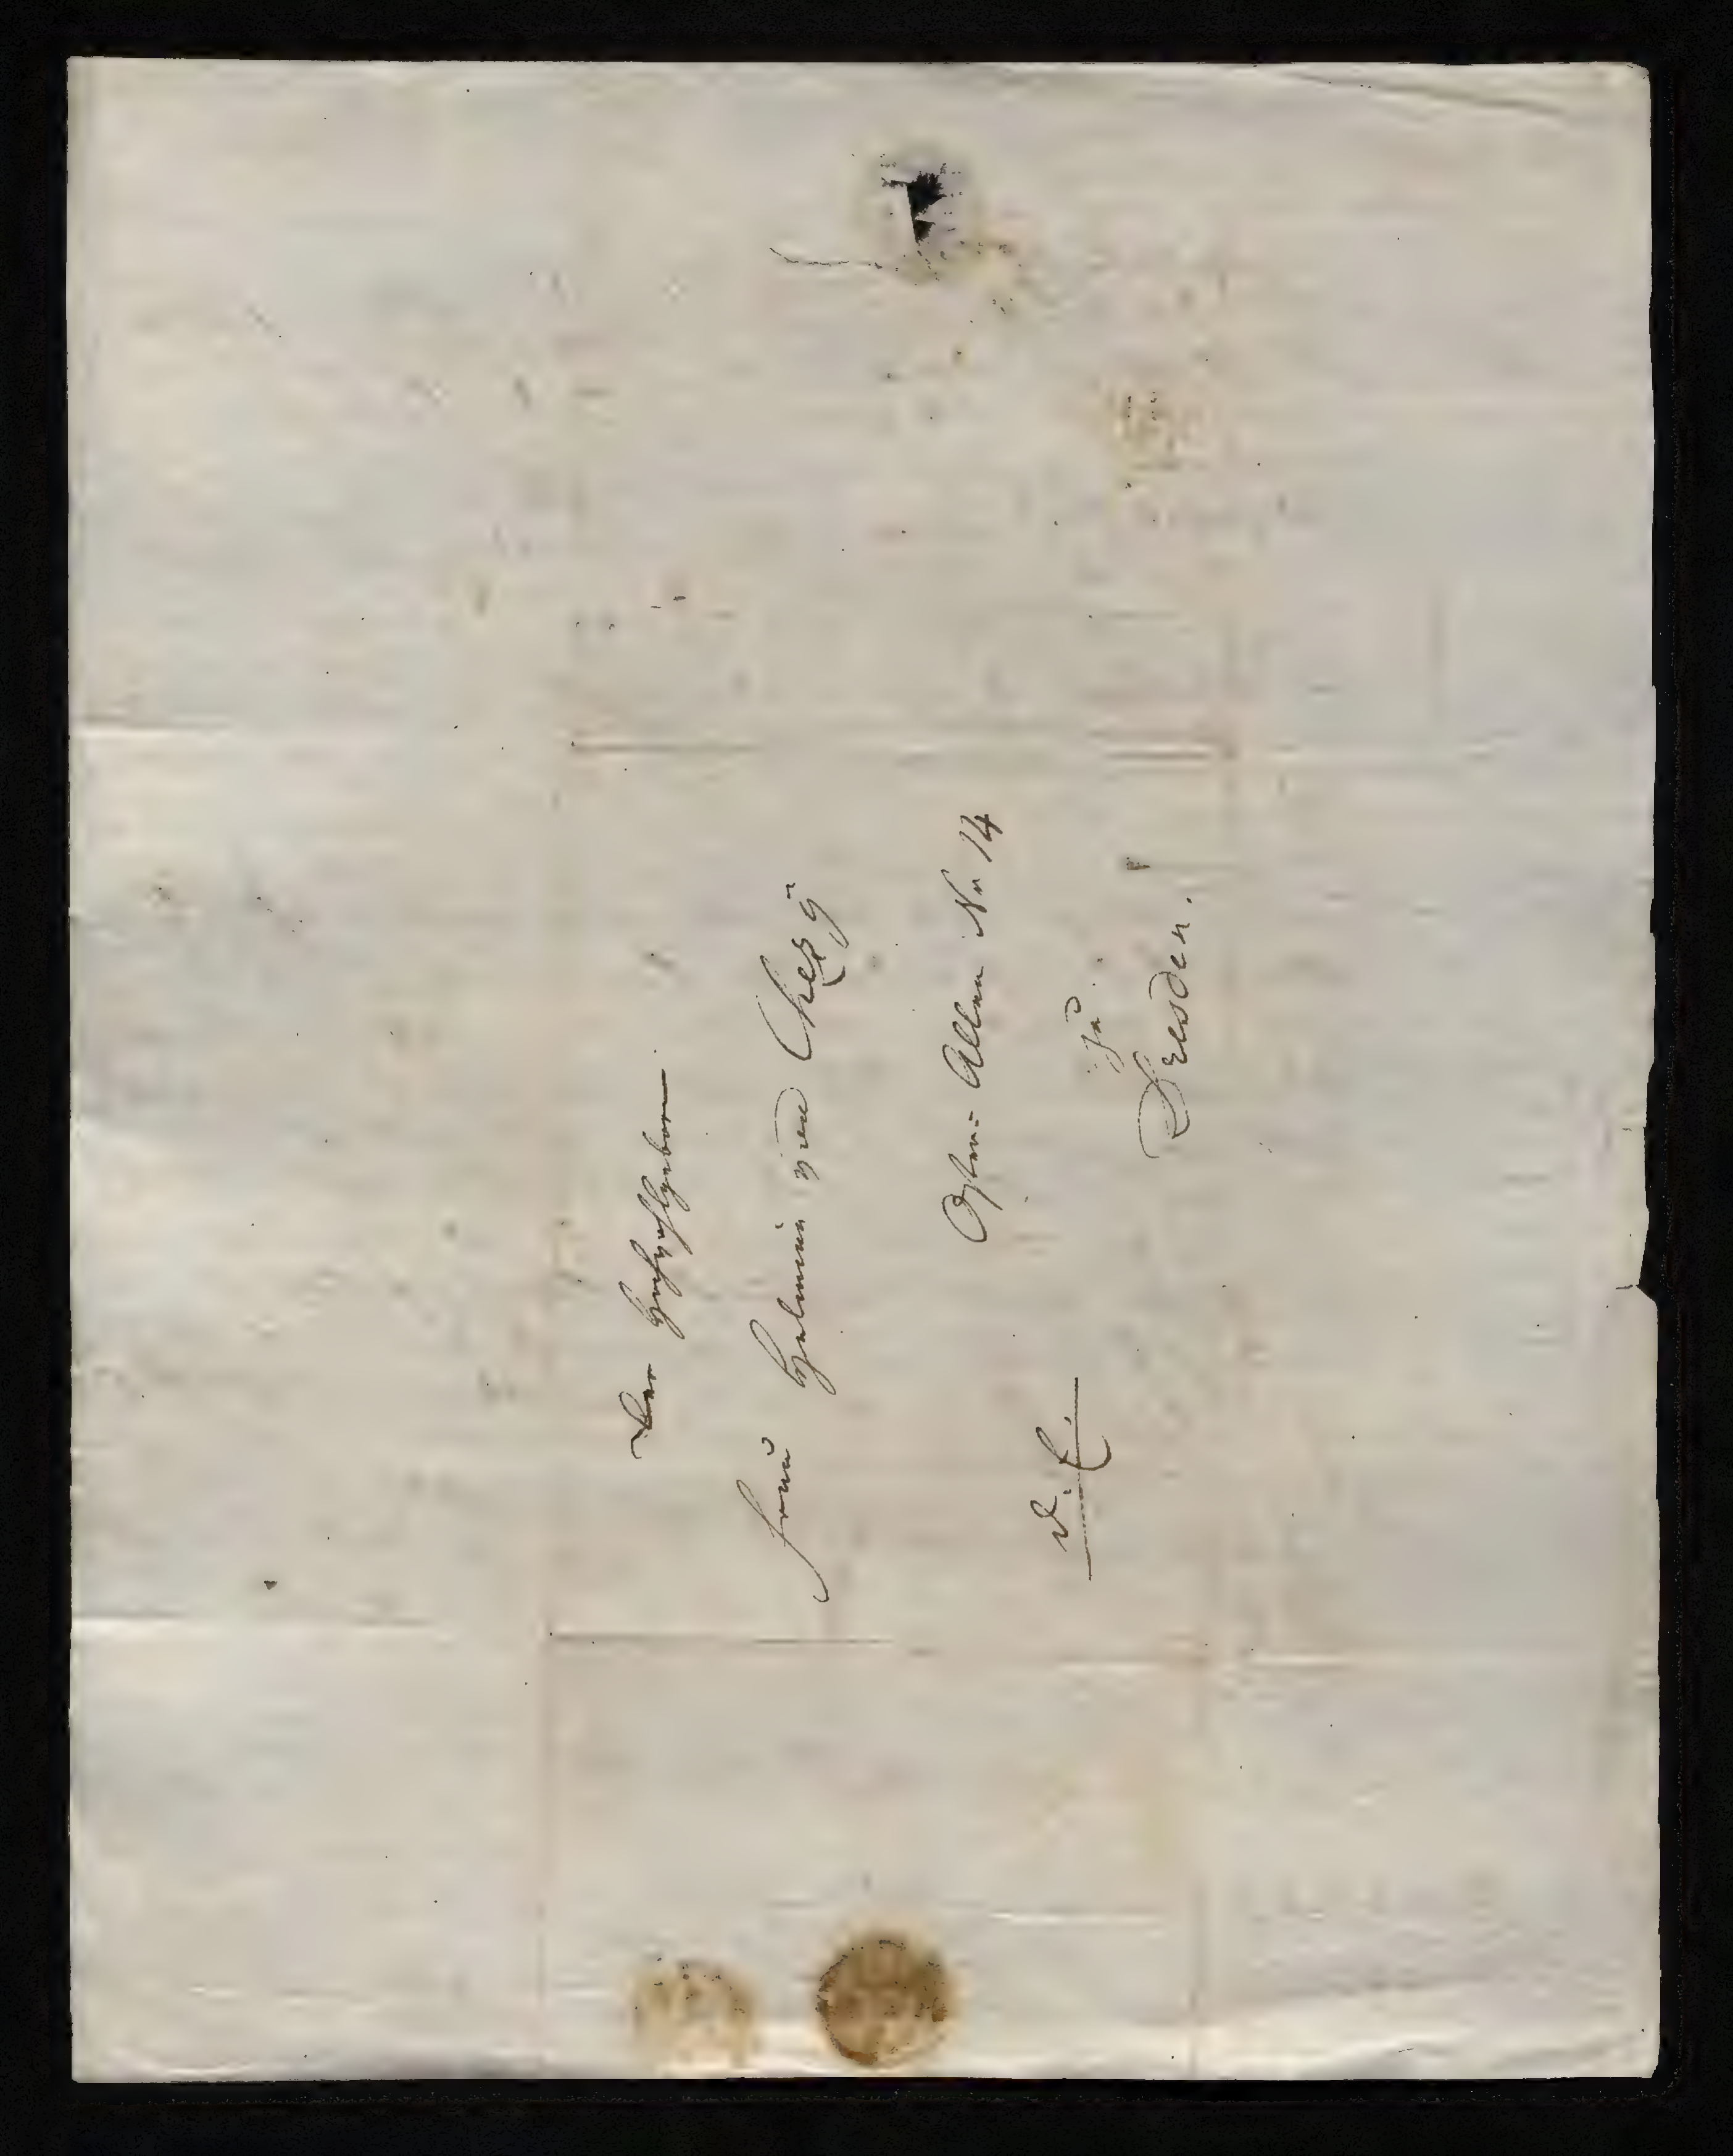 Der Hochwohlgebornen
Frau Helmina von Chezÿ
Oster-Allee No 14
zu
Dresden.
d. E.